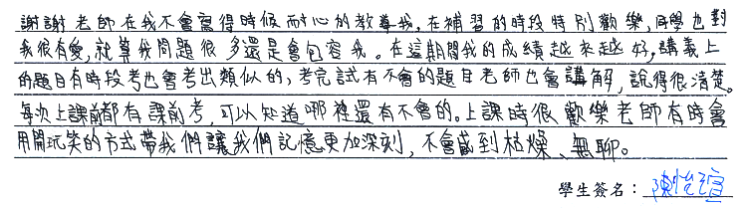 謝謝老師在我不會寫得時候耐心的教導我，在補習的時段特別歡樂，同學也對
我很有愛，就算我問題很多還是會包容我。在這期間我的成績越來越好，講義上
的題目有時段考也會考出類似的，考完試有不會的題目老師也會講解，說得很清楚。
每次上課前都有課前考，可以知道哪裡還有不會的。上課時很歡樂老師有時會
用開玩笑的方式帶我們讓我們記憶更加深刻，不會感到枯燥、無聊。
學生簽名：陳怡瑄